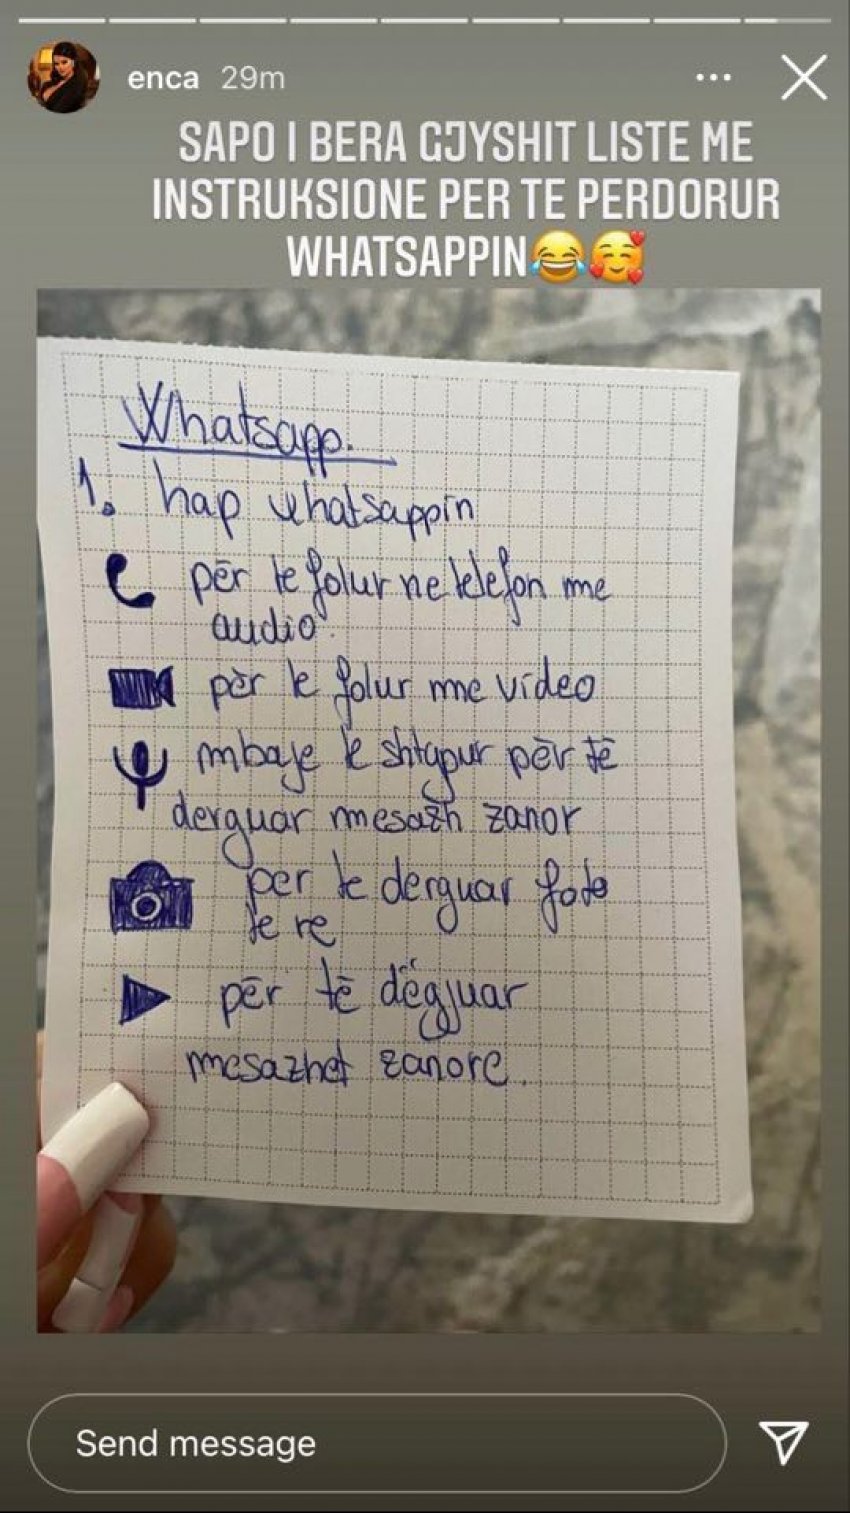 enca 29m
SAPO I BERA GJYSHIT LISTE ME
INSTRUKSIONE PER TE PERDORUR
WHATSAPPIN😂🥰
Whatsapp.
1. hap whatsappin
për te folur ne telefon me
audio.
për te folur me video
mbaje te shtypur për të
derguar mesazh zanor
per te derguar foto
te re
për të dëgjuar
mesazhet zanore.
Send message